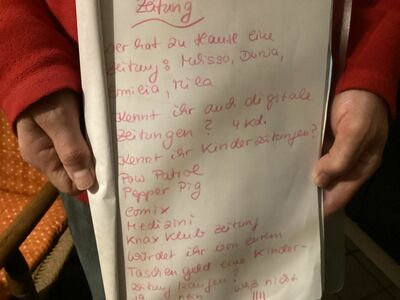 Zeitung
Wer hat zu Hause eine
Zeitung? Melissa, Dunja,
Emilia, Mila
Kennt ihr auch digitale
Zeitungen? 4 Kd.
Kennt ihr Kinderzeitungen?
Paw Patrol
Pepper Pig
Comix
Medizini
Knax Klub Zeitung
Würdet ihr von eurem
Taschengeld eine Kinder-
zeitung kaufen?
ja nein weiß nicht
IIII